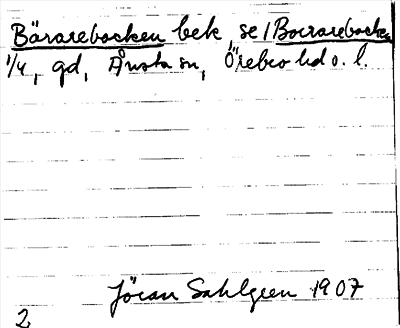 Bärarebacken bek, se / Borrarebacken
1/4, gd, Ånsta sn, Örebro hd o. l.
Jöran Sahlgren 1907
2